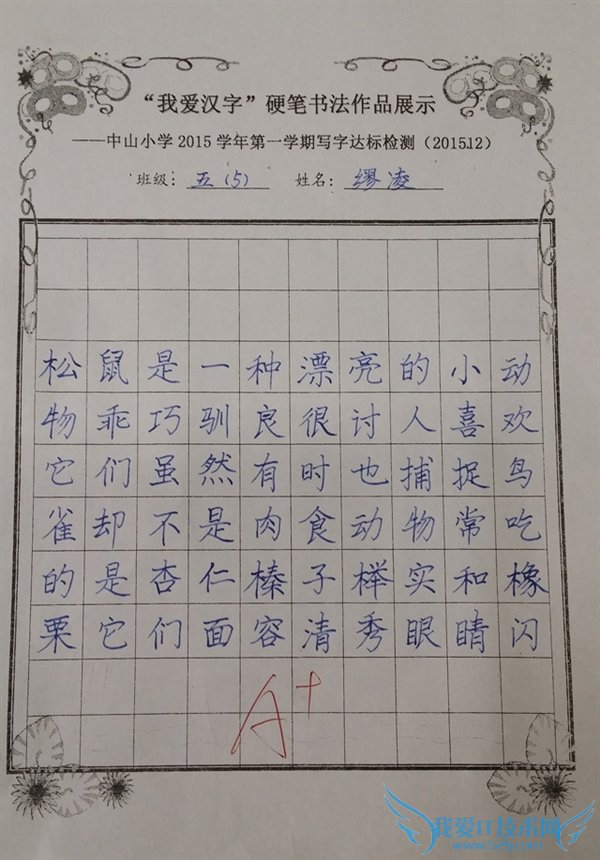 “我爱汉字”硬笔书法作品展示
——中山小学2015学年第一学期写字达标检测（2015.12）
班级：五（5） 姓名：缪凌
松鼠是一种漂亮的小动
物乖巧驯良很讨人喜欢
它们虽然有时也捕捉鸟
雀却不是肉食动物常吃
的是杏仁榛子榉实和橡
栗它们面容清秀眼睛闪
A+
我爱IT技术网